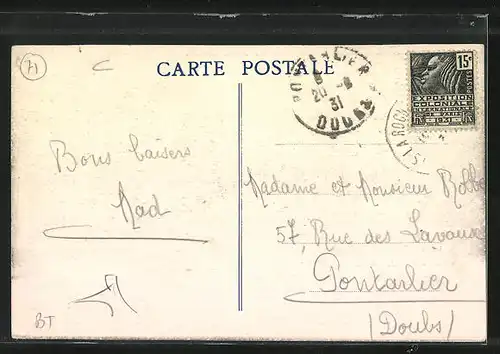 71
C
CARTE POSTALE
PONTARLIER
20 -8
31
DOUBS
15c
POSTES
EXPOSITION
COLONIALE
INTERNATIONALE
PARIS 1931
LA ROCH
Bons baisers
Mad
Madame et Monsieur
57, Rue des
Pontarlier
(Doubs)
BT